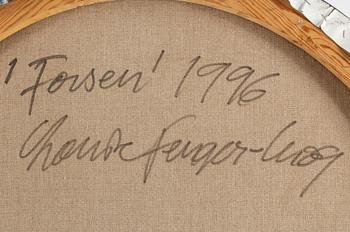 'Forsen' 1996
Louise Fenger-Krog